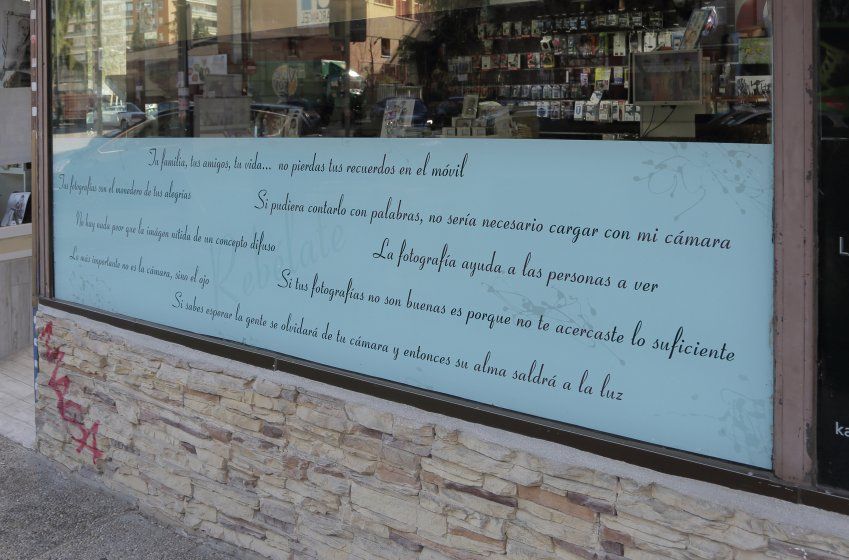 Tu familia, tus amigos, tu vida... no pierdas tus recuerdos en el móvil
Tus fotografías son el monedero de tus alegrías
Si pudiera contarlo con palabras, no sería necesario cargar con mi cámara
No hay nada peor que la imágen nítida de un concepto difuso
La fotografía ayuda a las personas a ver
Lo más importante no es la cámara, sino el ojo
Si tus fotografías no son buenas es porque no te acercaste lo suficiente
Si sabes esperar la gente se olvidará de tu cámara y entonces su alma saldrá a la luz
Rebélate
L
ka